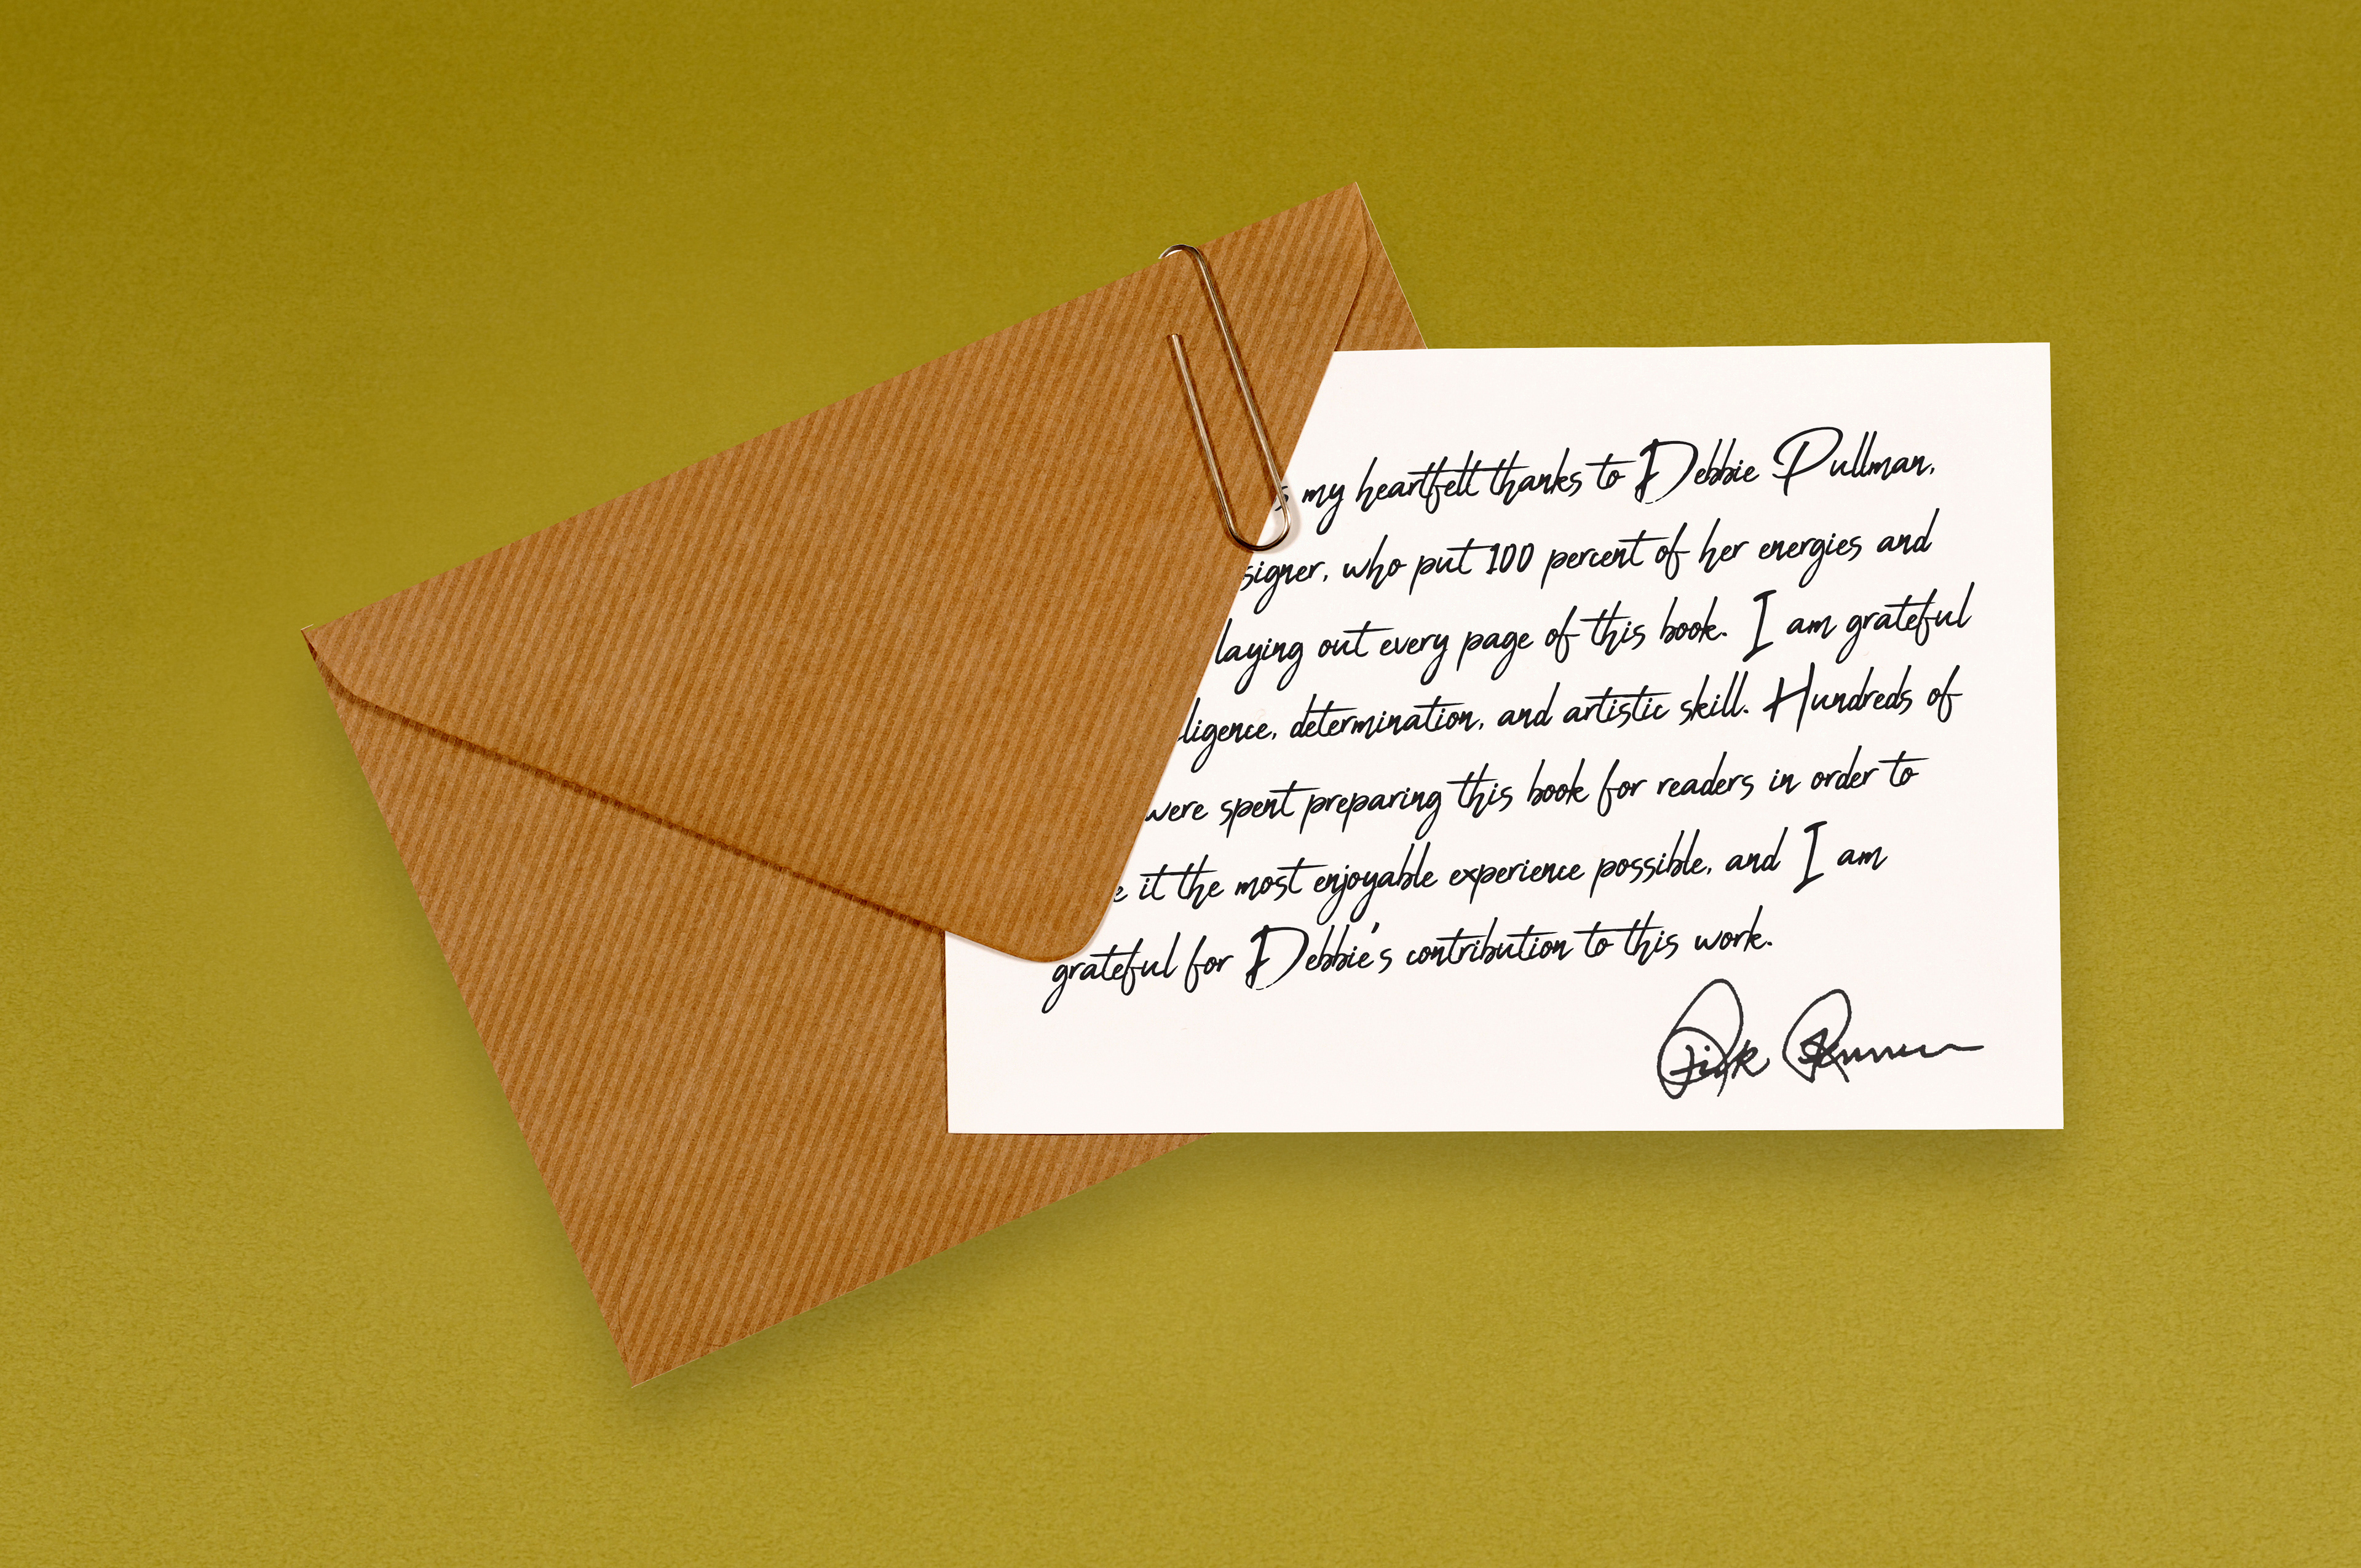 my heartfelt thanks to Debbie Pullman,
signer, who put 100 percent of her energies and
laying out every page of this book. I am grateful
ligence, determination, and artistic skill. Hundreds of
were spent preparing this book for readers in order to
e it the most enjoyable experience possible, and I am
grateful for Debbie's contribution to this work.